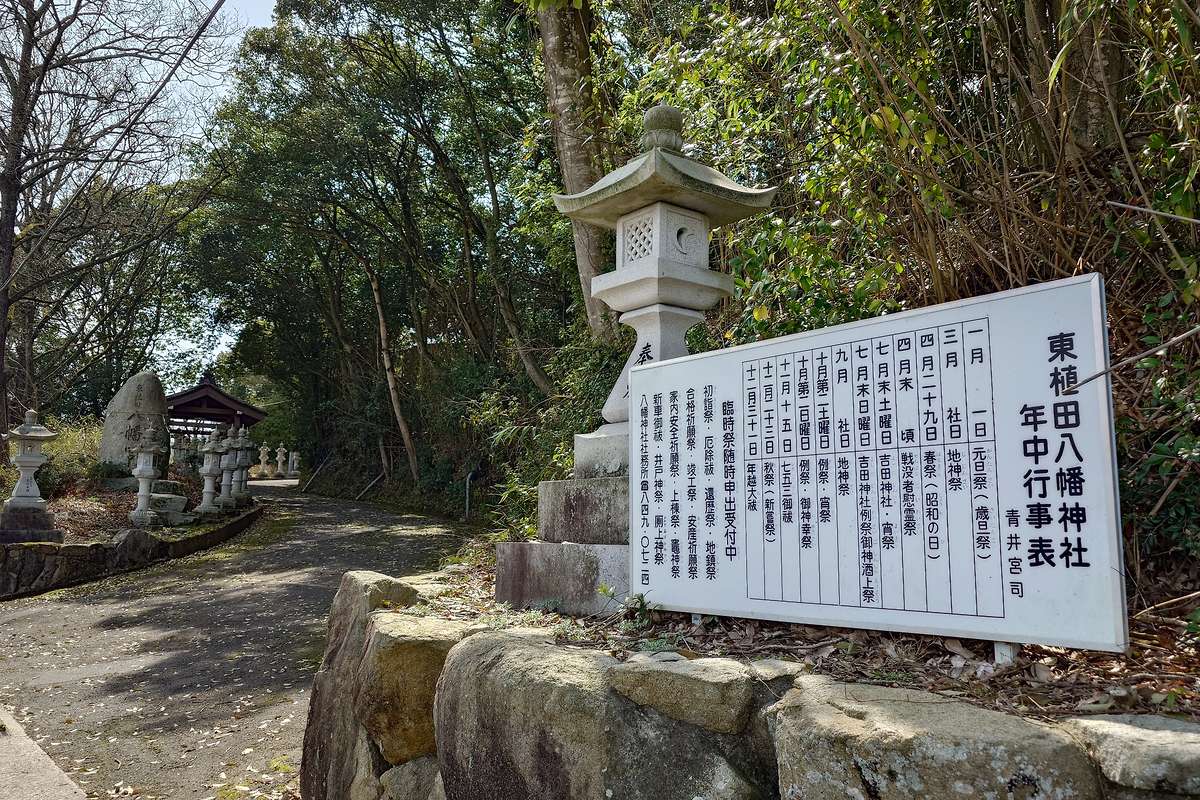 東植田八幡神社
年中行事表
青井宮司
一月 一日 元旦祭（歳旦祭）
三月 社日 地神祭
四月二十九日 春祭（昭和の日）
四月末 頃 戦没者慰霊祭
七月末土曜日 吉田神社・宵祭
七月末日曜日 吉田神社例祭御神酒上祭
九月 社日 地神祭
十月第二土曜日 例祭・宵祭
十月第二日曜日 例祭・御神幸祭
十一月十五日 七五三御祓
十二月二十三日 秋祭（新嘗祭）
十二月三十一日 年越大祓
臨時祭随時申出受付中
初詣祭・厄除祓・還暦祭・地鎮祭
合格祈願祭・竣工祭・安産祈願祭
家内安全祈願祭・上棟祭・竈神祭
新車御祓・井戸神祭・厠上神祭
八幡神社社務所☎八四九-〇七二四
奉
八幡